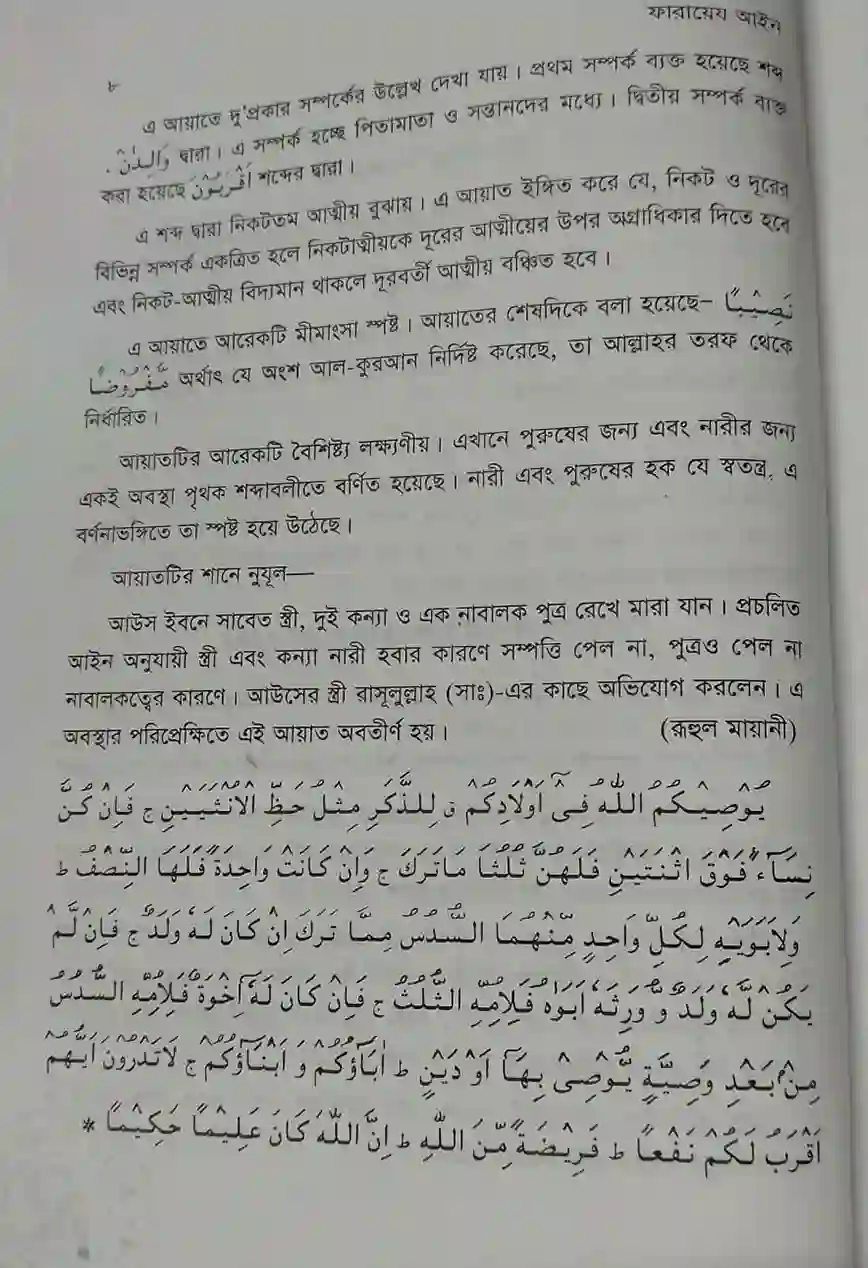 ফারায়েয আইন
৮
এ আয়াতে দু'প্রকার সম্পর্কের উল্লেখ দেখা যায়। প্রথম সম্পর্ক ব্যক্ত হয়েছে শব্দ
وَالِدٰنْ. দ্বারা। এ সম্পর্ক হচ্ছে পিতামাতা ও সন্তানদের মধ্যে। দ্বিতীয় সম্পর্ক ব্যক্ত
করা হয়েছে اَقْرَبُوْنَ শব্দের দ্বারা।
এ শব্দ দ্বারা নিকটতম আত্মীয় বুঝায়। এ আয়াত ইঙ্গিত করে যে, নিকট ও দূরের
বিভিন্ন সম্পর্ক একত্রিত হলে নিকটাত্মীয়কে দূরের আত্মীয়ের উপর অগ্রাধিকার দিতে হবে
এবং নিকট-আত্মীয় বিদ্যমান থাকলে দূরবর্তী আত্মীয় বঞ্চিত হবে।
এ আয়াতে আরেকটি মীমাংসা স্পষ্ট। আয়াতের শেষদিকে বলা হয়েছে– نَصِيْبًا
مَّفْرُوْضًا অর্থাৎ যে অংশ আল-কুরআন নির্দিষ্ট করেছে, তা আল্লাহর তরফ থেকে
নির্ধারিত।
আয়াতটির আরেকটি বৈশিষ্ট্য লক্ষ্যণীয়। এখানে পুরুষের জন্য এবং নারীর জন্য
একই অবস্থা পৃথক শব্দাবলীতে বর্ণিত হয়েছে। নারী এবং পুরুষের হক যে স্বতন্ত্র, এ
বর্ণনাভঙ্গিতে তা স্পষ্ট হয়ে উঠেছে।
আয়াতটির শানে নুযূল—
আউস ইবনে সাবেত স্ত্রী, দুই কন্যা ও এক নাবালক পুত্র রেখে মারা যান। প্রচলিত
আইন অনুযায়ী স্ত্রী এবং কন্যা নারী হবার কারণে সম্পত্তি পেল না, পুত্রও পেল না
নাবালকত্বের কারণে। আউসের স্ত্রী রাসূলুল্লাহ (সাঃ)-এর কাছে অভিযোগ করলেন। এ
অবস্থার পরিপ্রেক্ষিতে এই আয়াত অবতীর্ণ হয়। (রূহুল মায়ানী)
يُوْصِيْكُمُ اللّٰهُ فِىْٓ اَوْلَادِكُمْ ق لِلذَّكَرِ مِثْلُ حَظِّ الْاُنْثَيَيْنِ ج فَاِنْ كُنَّ
نِسَآءً فَوْقَ اثْنَتَيْنِ فَلَهُنَّ ثُلُثَا مَاتَرَكَ ج وَاِنْ كَانَتْ وَاحِدَةً فَلَهَا النِّصْفُ ط
وَلِاَبَوَيْهِ لِكُلِّ وَاحِدٍ مِّنْهُمَا السُّدُسُ مِمَّا تَرَكَ اِنْ كَانَ لَهٗ وَلَدٌ ج فَاِنْ لَّمْ
يَكُنْ لَّهٗ وَلَدٌ وَّ وَرِثَهٗٓ اَبَوٰهُ فَلِاُمِّهِ الثُّلُثُ ج فَاِنْ كَانَ لَهٗٓ اِخْوَةٌ فَلِاُمِّهِ السُّدُسُ
مِنْۢ بَعْدِ وَصِيَّةٍ يُّوْصِىْ بِهَآ اَوْ دَيْنٍ ط اٰبَاؤُكُمْ وَ اَبْنَاؤُكُمْ ج لَاتَدْرُوْنَ اَيُّهُمْ
اَقْرَبُ لَكُمْ نَفْعًا ط فَرِيْضَةً مِّنَ اللّٰهِ ط اِنَّ اللّٰهَ كَانَ عَلِيْمًا حَكِيْمًا *